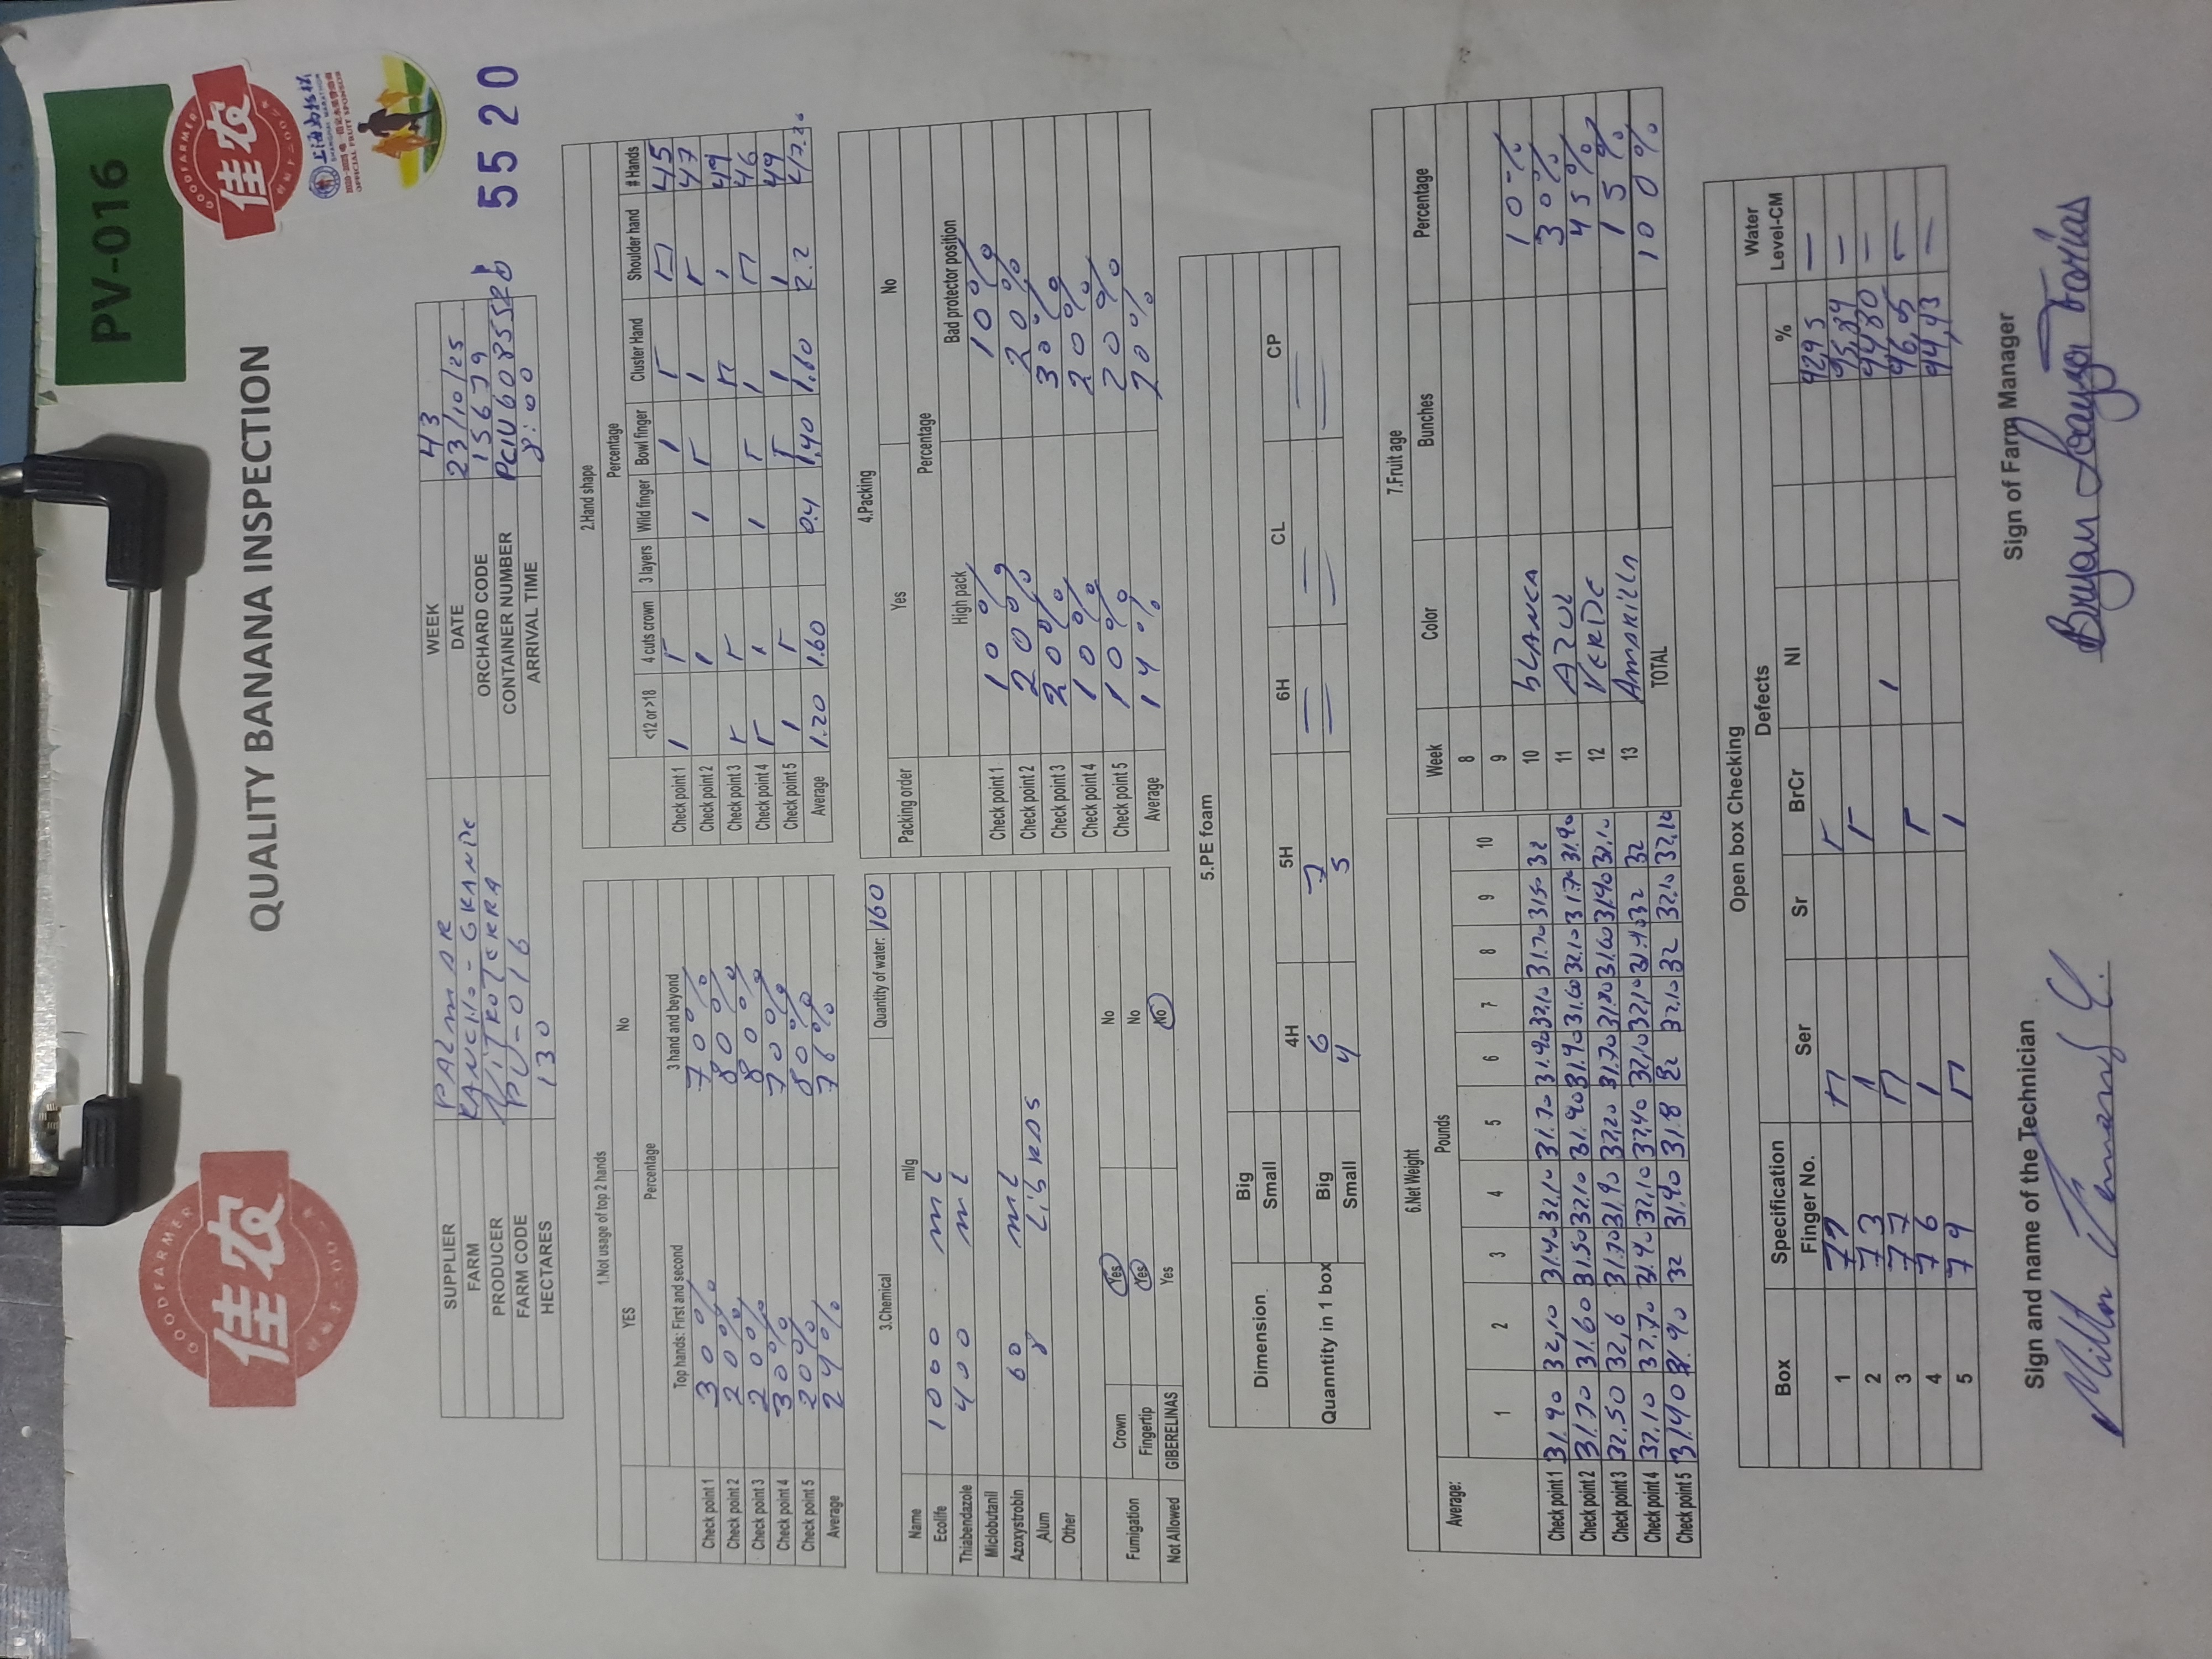 PV-016
GOODFARMER
佳农
QUALITY BANANA INSPECTION
GOODFARMER
佳农
上海马拉松
SHANGHAI MARATHON
OFFICIAL FRUIT SPONSOR
SUPPLIER PALMAR WEEK 43
FARM RANCHO-GRANDE DATE 23/10/25
PRODUCER NITROTERRA ORCHARD CODE 15679
FARM CODE PV-016 CONTAINER NUMBER PCIU6085520
HECTARES 130 ARRIVAL TIME 8:00
5520
1.Not usage of top 2 hands
YES No
Percentage
Top hands: First and second 3 hand and beyond
Check point 1 30% 70%
Check point 2 20% 80%
Check point 3 20% 80%
Check point 4 30% 70%
Check point 5 20% 80%
Average 24% 76%
2.Hand shape
Percentage
<12 or >18 4 cuts crown 3 layers Wild finger Bowl finger Cluster Hand Shoulder hand # Hands
Check point 1 45
Check point 2 47
Check point 3 49
Check point 4 46
Check point 5 49
Average 1.20 1.60 0.4 1.40 1.60 2.2 47.20
3.Chemical Quantity of water: 160
Name ml/g
Ecolife 1000 ml
Thiabendazole 400 ml
Miclobutanil
Azoxystrobin 60 ml
Alum 8 LibRAS
Other
Fumigation Crown Yes No
Fingertip Yes No
Not Allowed GIBERELINAS Yes No
4.Packing
Packing order Yes No
Percentage
High pack Bad protector position
Check point 1 10% 10%
Check point 2 20% 20%
Check point 3 20% 30%
Check point 4 10% 20%
Check point 5 10% 20%
Average 14% 20%
5.PE foam
Dimension Big
Small
4H 5H 6H CL CP
Quanntity in 1 box Big 6 7
Small 4 5
6.Net Weight
Average: Pounds
1 2 3 4 5 6 7 8 9 10
Check point 1 31.90 32,10 31.40 32.10 31.70 31.90 32.10 31.70 31.50 32
Check point 2 31.70 31.60 31.50 32.10 31.90 31.90 31.60 32.10 31.70 31.90
Check point 3 32.50 32,6 31.70 31.90 32.20 31.70 31.80 31.60 31.90 32.10
Check point 4 32.10 32.70 31.90 32,10 32.40 32,10 32,10 32 32
Check point 5 31.40 31.90 32 31.90 31.8 32 32.10 32 32.10 32.10
7.Fruit age
Week Color Bunches Percentage
8
9
10 bLANCA 10%
11 AZUL 30%
12 VERDE 45%
13 AMARILLA 15%
TOTAL 100%
Open box Checking
Box Specification Defects Water
Level-CM
Finger No. Ser Sr BrCr NI %
1 77 92,95 —
2 73 95,89 —
3 77 94.80 —
4 76 96,05 —
5 79 94,93 —
Sign and name of the Technician
Sign of Farm Manager
Bryan Loayza Farias